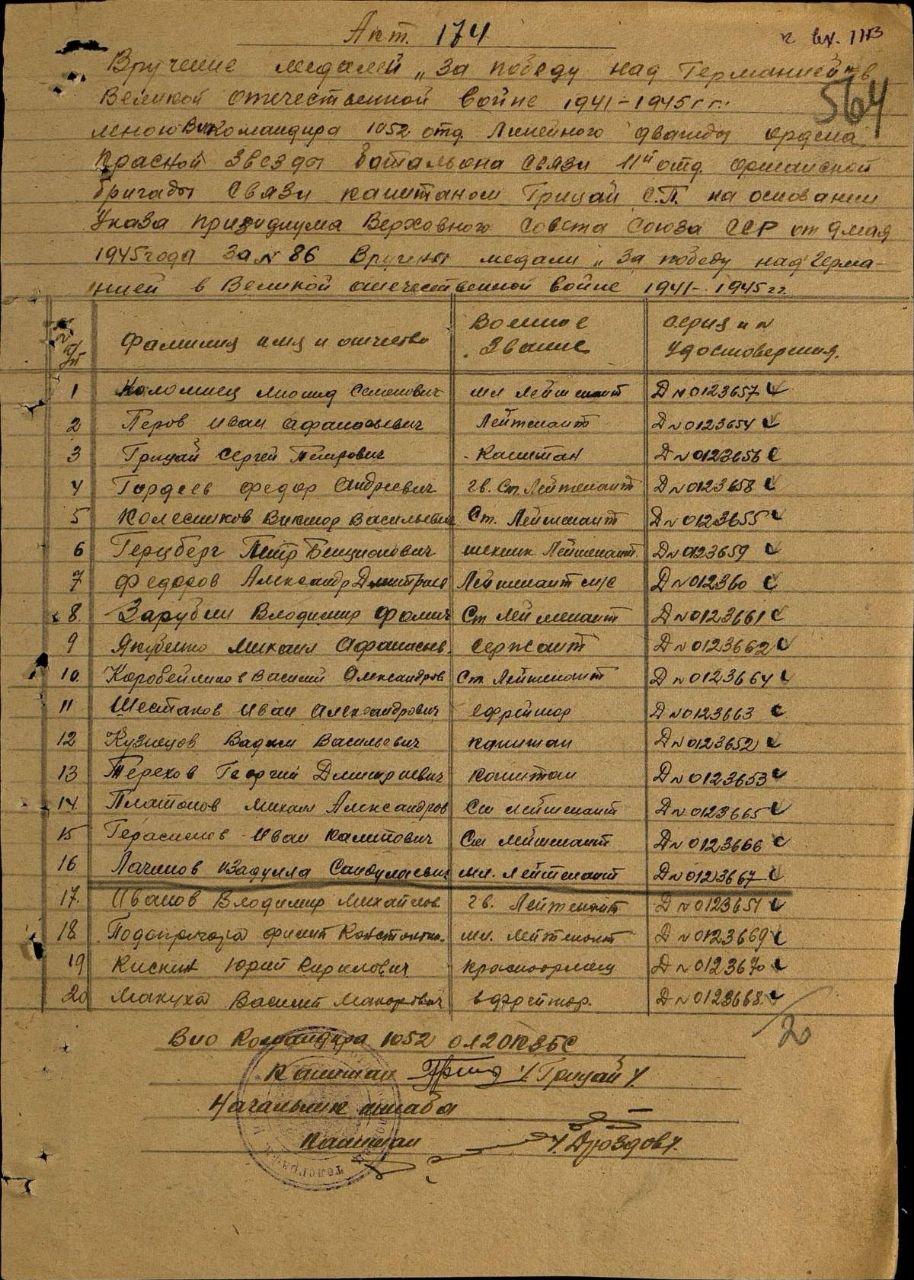 Акт. 174
к вх. 1173
564
Вручение медалей „За победу над Германией в
Великой отечественной войне 1941-1945 г.г.
мною Вио Командира 1052 отд. Линейного дважды ордена
Красной Звезды баталиона связи 11й отд. армейской
бригады Связи капитаном Грицай С.П. на основании
Указа Призидиума Верховного Совета Союза ССР от 9 мая
1945 года за № 86 Вручены медали „За победу над Герма-
нией в Великой отечественной войне 1941-1945 гг.
№ п/п Фамилия имя и отчество Военное Звание серия и № Удостоверения.
1 Коломиец Леонид Семенович мл Лейтенант Д № 0123657
2 Перов Иван Афанасьевич Лейтенант Д № 0123654
3 Грицай Сергей Петрович Капитан Д № 0123656
4 Гордеев Федор Андреевич гв. Ст. Лейтенант Д № 0123658
5 Колесников Виктор Васильевич Ст. Лейтенант Д № 0123655
6 Герцберг Петр Бенционович техник Лейтенант Д № 0123659
7 Федоров Александр Дмитриев Лейтенант Д № 012360
8 Зарубин Владимир Фомич Ст Лейтенант Д № 0123661
9 Якубенко Михаил Афанасьев. сержант Д № 0123662
10 Коробейников Василий Александров Ст. Лейтенант Д № 0123664
11 Шестаков Иван Александрович ефрейтор Д № 0123663
12 Кузнецов Вадим Васильевич капитан Д № 0123652
13 Терехов Георгий Дмитриевич капитан Д № 0123653
14 Платонов Михаил Александров Ст Лейтенант Д № 0123665
15 Герасимов Иван Ст Лейтенант Д № 0123666
16 Лачинов мл. Лейтенант Д № 0123667
17. Иванов Владимир Михайлов гв. Лейтенант Д № 0123651
18 Подопригора Филипп Константин. мл. Лейтенант Д № 0123669
19 Кискин Юрий Кирилович красноармеец Д № 0123670
20 Макуха Василий Макарович ефрейтор. Д № 0123668
20
Вио Командира 1052
Капитан /Грицай/.
Начальник штаба
Капитан /Дроздов/.